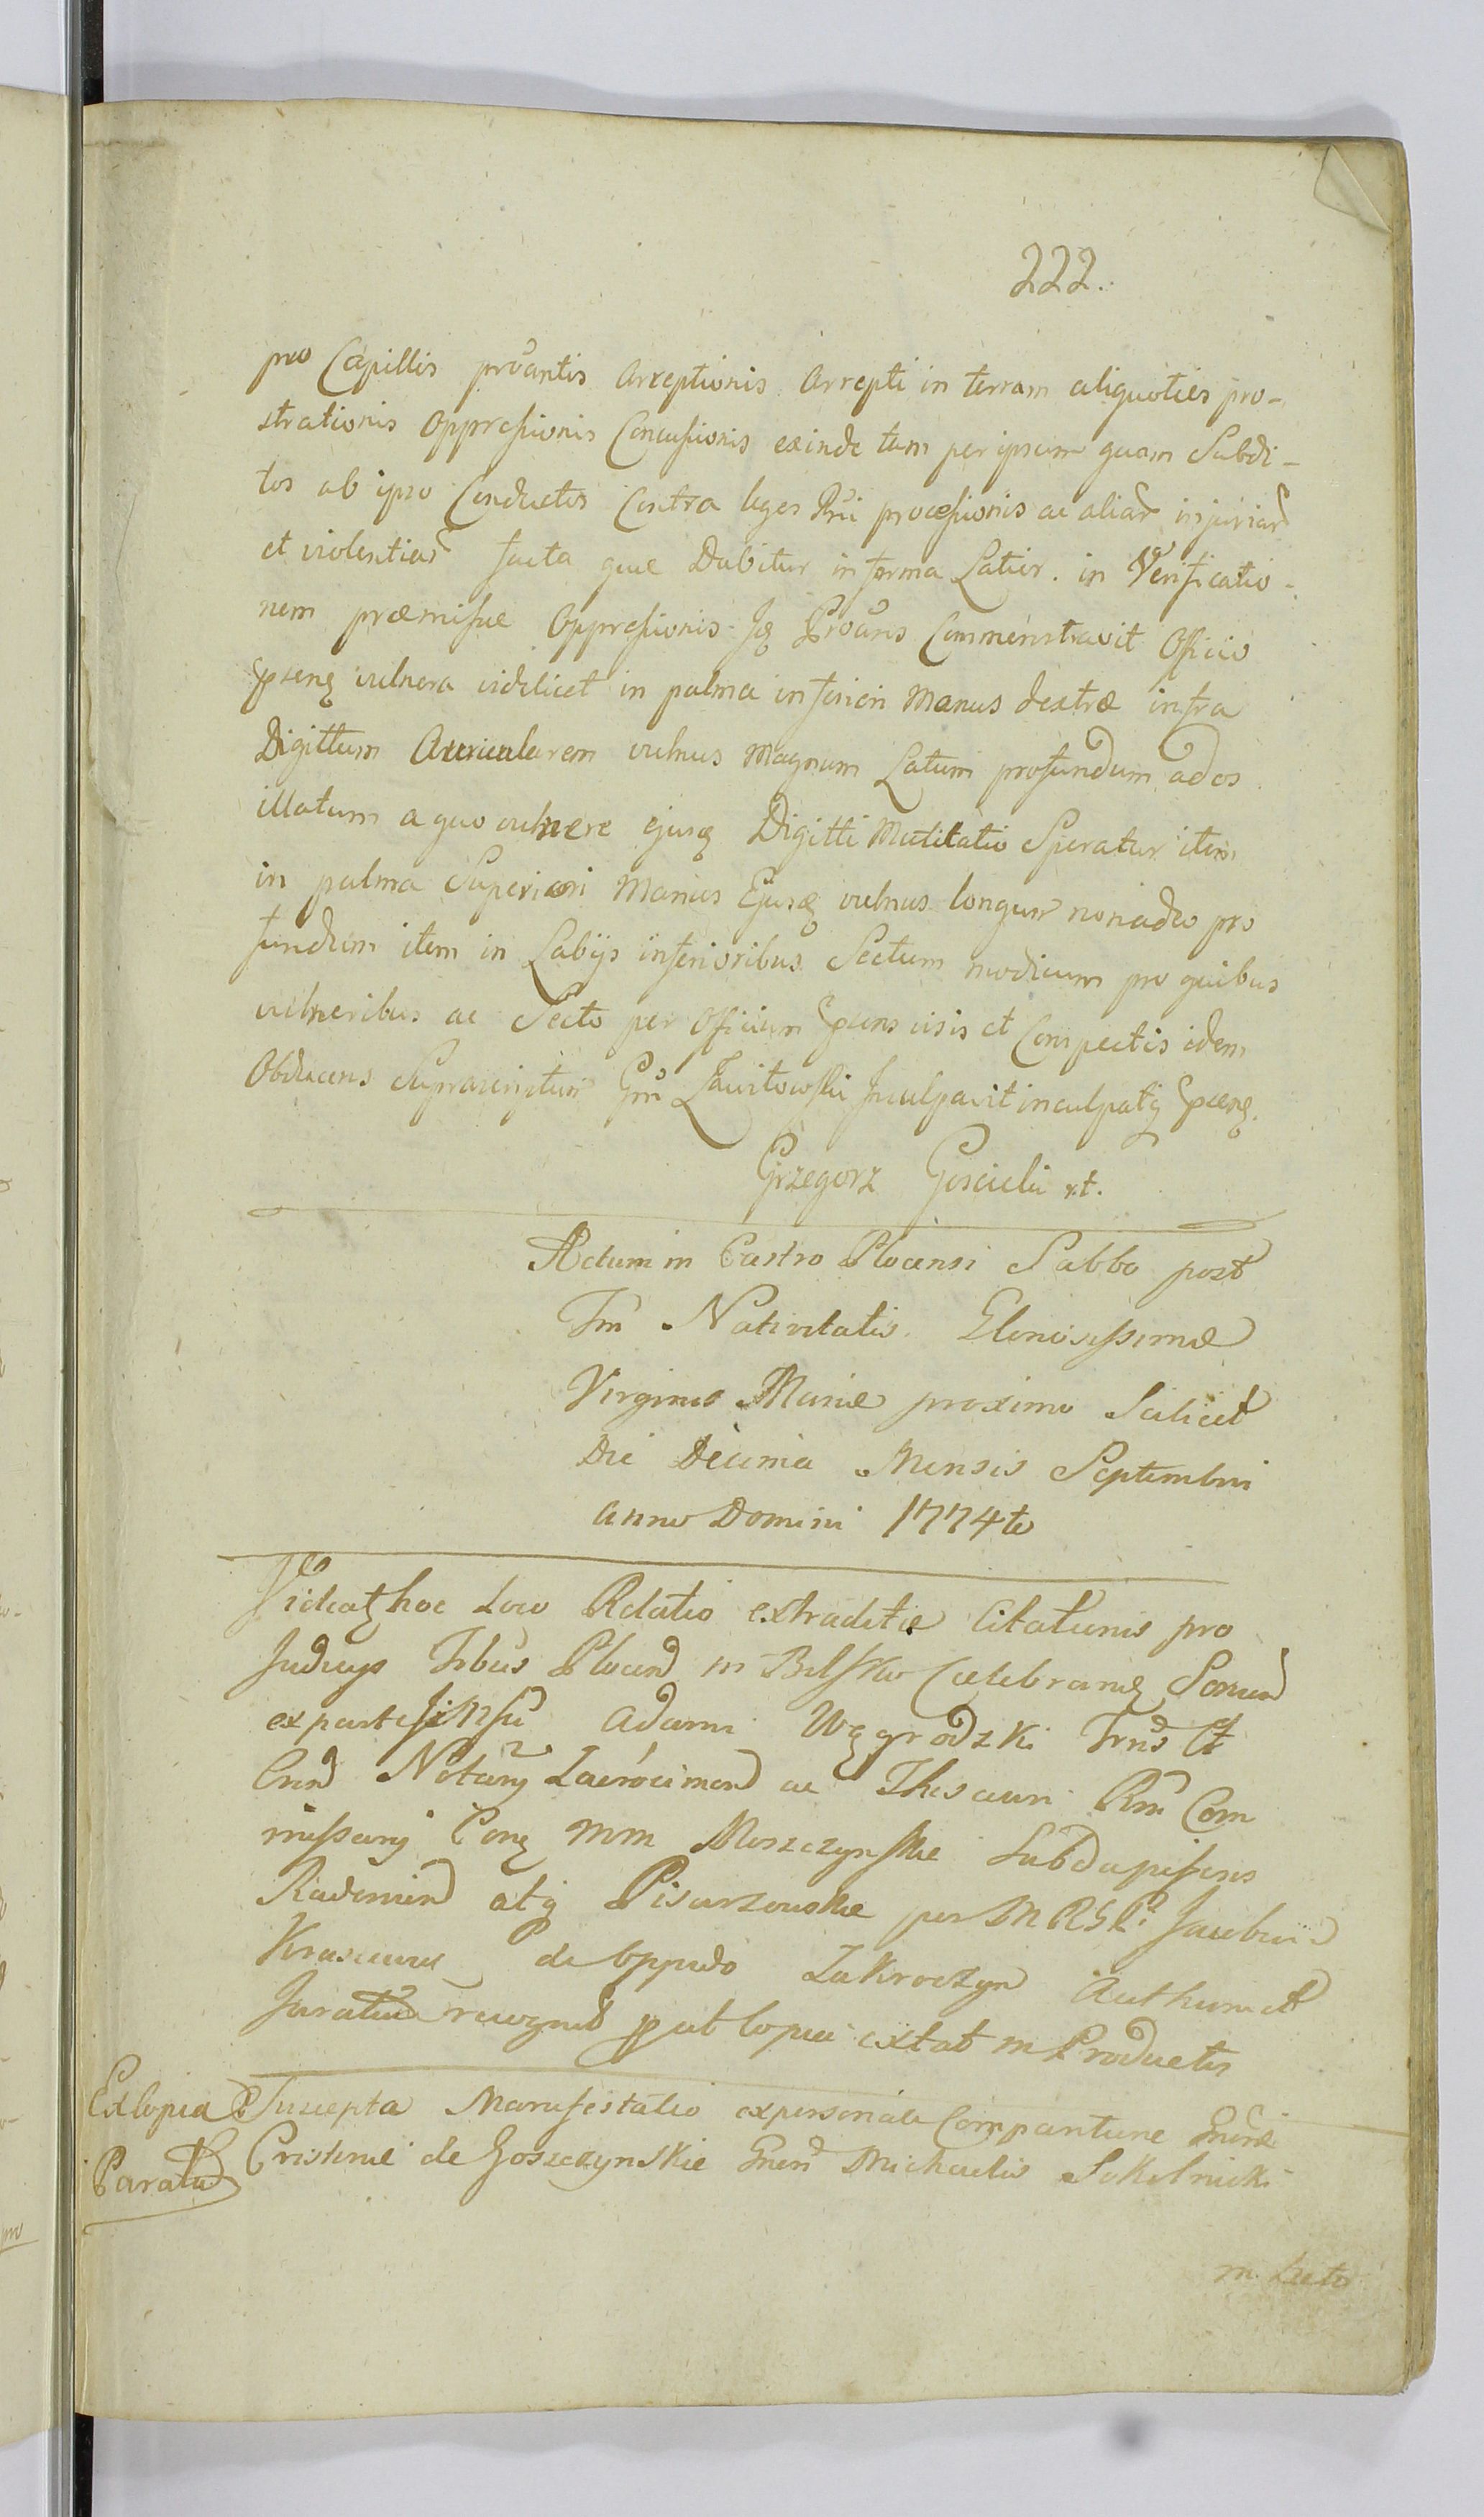 222.
pro Capillis provantis Arreptionis Arrepti in terram aliquoties pro-
strationis Oppressionis Concussionis exinde tam per ipsum quam Subdi-
tos ab ipso Conductos Contra leges Rni processionis ac aliar injuriar
et violentiar facta quae Dabitur in forma Latior. in Verificatio-
nem praemissae Oppressionis Commonstravit Officio
vulnera videlicet in palma inferiori Manus dextrae infra
Digittum Auricularem vulnus Magnum Latum profundum ad os
illatum a quo vulnere ejusq Digitti Mutilatio Speratur item
in palma Superiori Manus Ejusq vulnus longum non adeo pro
fundum item in Labijs inferioribus Sectum modicum pro quibus
vulneribus ac Secto per Officium visis et Conspectis idem
Obducens Suprascriptum Gnm Inculpavit inculpatq
Grzegorz
Actum in Castro Plocensi Sabbo post
Fm Nativitatis Gloriosissimae
Virginis Mariae proximo Scilicet
Die Decima Mensis Septembris
Anno Domini 1774to
Videatq hoc Loco Relatio extraditae Citationis pro
Judicys Plocen in Bielsko Celebran
ex parte Adami Węgrodzki et
Notary ac Thesauri Rni Com
missary Mm Moszczynskie Subdapiferis
atq Pisarzowskie per Jacobum
de Oppido Zakroczyn Authen et
Juratum recognit put Copia extat in Productis
Ex Copia Suscepta Manifestatio ex personali Comparitione
Paratu Cristinae de Goszczynskie Gnen Michaelis Sokolnicki